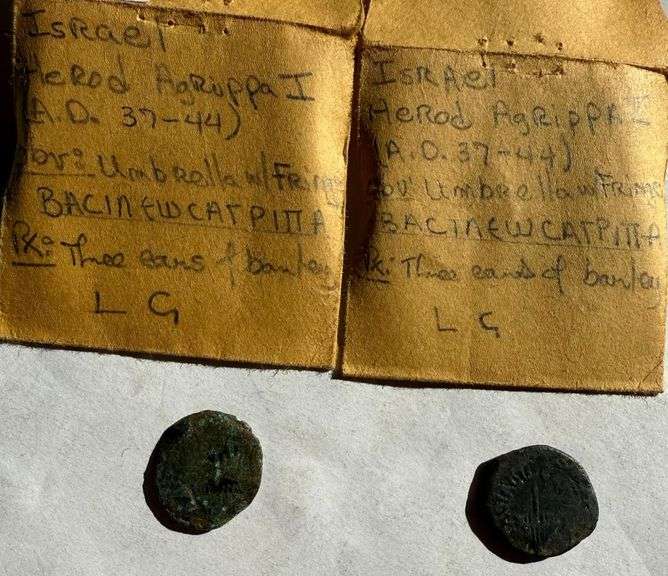 Israel
Herod Agruppa I
(A.D. 37-44)
Umbrella w/ Fringe
BACINEWCATPITTA
Rx: Three ears of barley
L G
Israel
Herod Agrippa I
(A.D. 37-44)
Umbrella w Fringe
BACINEWCATPITTA
Rx: Three ears of barley
L G